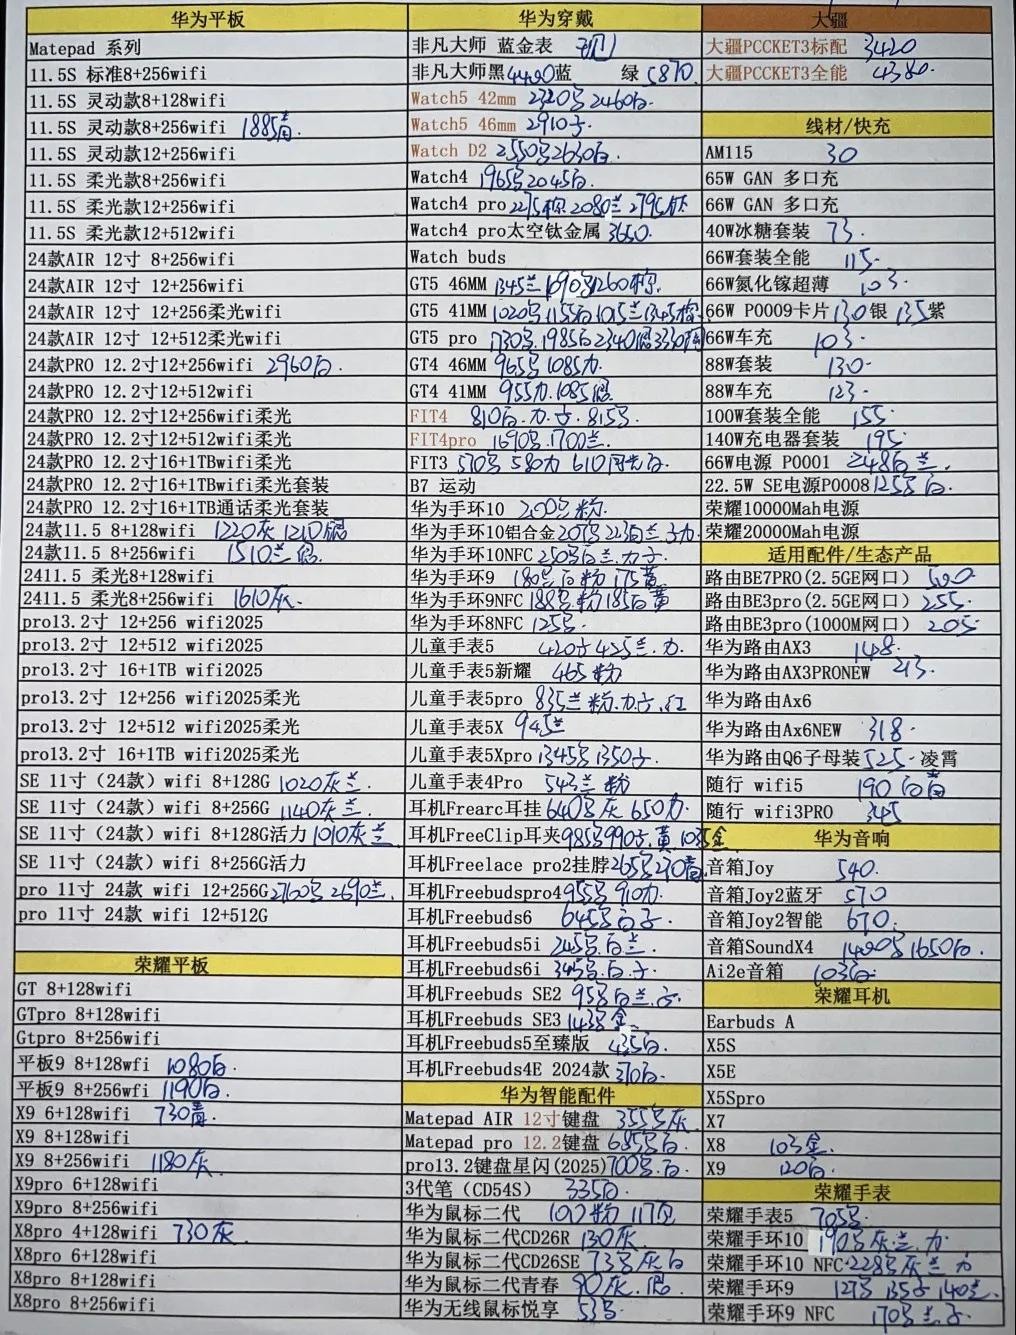 华为平板
Matepad 系列
11.5S 标准8+256wifi
11.5S 灵动款8+128wifi
11.5S 灵动款8+256wifi 1885青
11.5S 灵动款12+256wifi
11.5S 柔光款8+256wifi
11.5S 柔光款12+256wifi
11.5S 柔光款12+512wifi
24款AIR 12寸 8+256wifi
24款AIR 12寸 12+256wifi
24款AIR 12寸 12+256柔光wifi
24款AIR 12寸 12+512柔光wifi
24款PRO 12.2寸12+256wifi 2960白.
24款PRO 12.2寸12+512wifi
24款PRO 12.2寸12+256wifi柔光
24款PRO 12.2寸12+512wifi柔光
24款PRO 12.2寸16+1TBwifi柔光
24款PRO 12.2寸16+1TBwifi柔光套装
24款PRO 12.2寸16+1TB通话柔光套装
24款11.5 8+128wifi 1220灰 1210银
24款11.5 8+256wifi 1510兰 银.
2411.5 柔光8+128wifi
2411.5 柔光8+256wifi 1610灰.
pro13.2寸 12+256 wifi2025
pro13.2寸 12+512 wifi2025
pro13.2寸 16+1TB wifi2025
pro13.2寸 12+256 wifi2025柔光
pro13.2寸 12+512 wifi2025柔光
pro13.2寸 16+1TB wifi2025柔光
SE 11寸（24款）wifi 8+128G 1020灰兰
SE 11寸（24款）wifi 8+256G 1140灰兰.
SE 11寸（24款）wifi 8+128G活力 1010灰兰
SE 11寸（24款）wifi 8+256G活力
pro 11寸 24款 wifi 12+256G 2760号 2690兰.
pro 11寸 24款 wifi 12+512G
荣耀平板
GT 8+128wifi
GTpro 8+128wifi
Gtpro 8+256wifi
平板9 8+128wfi 1080白.
平板9 8+256wfi 1190白.
X9 6+128wifi 730青.
X9 8+128wifi
X9 8+256wifi 1180灰.
X9pro 6+128wifi
X9pro 8+256wifi
X8pro 4+128wifi 730灰.
X8pro 6+128wifi
X8pro 8+128wifi
X8pro 8+256wifi
华为穿戴
非凡大师 蓝金表
非凡大师黑4400蓝 绿5870.
Watch5 42mm 2320号2460白.
Watch5 46mm 2910子.
Watch D2 2550号2630白.
Watch4 1965号2045白.
Watch4 pro 2275棕 2080兰 2795灰
Watch4 pro太空钛金属 3650.
Watch buds
GT5 46MM 1345兰 1090号1260棕.
GT5 41MM 1020号1155白1015兰1345棕
GT5 pro 1730号.1985白2340银3330陶
GT4 46MM 965号1085力.
GT4 41MM 955力.1085银.
FIT4 810白.力.子.815号.
FIT4pro 1690号.1700兰.
FIT3 570号 580力 610月光白.
B7 运动
华为手环10 200号 粉.
华为手环10铝合金 207号 223白兰 子力.
华为手环10NFC 250号白兰.力子.
华为手环9 180号白粉 175黄
华为手环9NFC 188号.粉185白黄
华为手环8NFC 125号.
儿童手表5 420子 425兰.力.
儿童手表5新耀 465 粉
儿童手表5pro 835兰 粉.力.子.红
儿童手表5X 945兰
儿童手表5Xpro 1345号1350子.
儿童手表4Pro 543兰 粉
耳机Frearc耳挂 640号灰 650力.
耳机FreeClip耳夹 985号990子.黄1035金
耳机Freelace pro2挂脖 265号270青.
耳机Freebudspro4 955号 910力.
耳机Freebuds6 645号白子.
耳机Freebuds5i 245号.白兰.
耳机Freebuds6i 345号.白.子.
耳机Freebuds SE2 95号白兰.子.
耳机Freebuds SE3 143号 金.
耳机Freebuds5至臻版 435白.
耳机Freebuds4E 2024款 370白.
华为智能配件
Matepad AIR 12寸键盘 355号灰.
Matepad pro 12.2键盘 685号白.
pro13.2键盘星闪(2025) 700号.白.
3代笔（CD54S） 335白.
华为鼠标二代 107粉 117白
华为鼠标二代CD26R 130灰.
华为鼠标二代CD26SE 73号灰白
华为鼠标二代青春 90灰.银.
华为无线鼠标悦享 53号.
大疆
大疆PCCKET3标配 3420
大疆PCCKET3全能 4380.
线材/快充
AM115 30
65W GAN 多口充
66W GAN 多口充
40W冰糖套装 73.
66W套装全能 115.
66W氮化镓超薄 103.
66W P0009卡片130银 135紫
66W车充 103.
88W套装 130.
88W车充 123.
100W套装全能 155.
140W充电器套装 195.
66W电源 P0001 248白兰.
22.5W SE电源P0008 125号白.
荣耀10000Mah电源
荣耀20000Mah电源
适用配件/生态产品
路由BE7PRO(2.5GE网口) 500.
路由BE3pro(2.5GE网口) 255.
路由BE3pro(1000M网口) 205.
华为路由AX3 148.
华为路由AX3PRONEW 213.
华为路由Ax6
华为路由Ax6NEW 318.
华为路由Q6子母装525.凌霄
随行 wifi5 190 白青
随行 wifi3PRO 345
华为音响
音箱Joy 540.
音箱Joy2蓝牙 570
音箱Joy2智能 670.
音箱SoundX4 1490号1650白.
Ai2e音箱 103白.
荣耀耳机
Earbuds A
X5S
X5E
X5Spro
X7
X8 103金.
X9 120白.
荣耀手表
荣耀手表5 705号.
荣耀手环10 190号灰.兰.力
荣耀手环10 NFC 228号灰 兰 力
荣耀手环9 127号 135子 140兰.
荣耀手环9 NFC 170号兰.子.